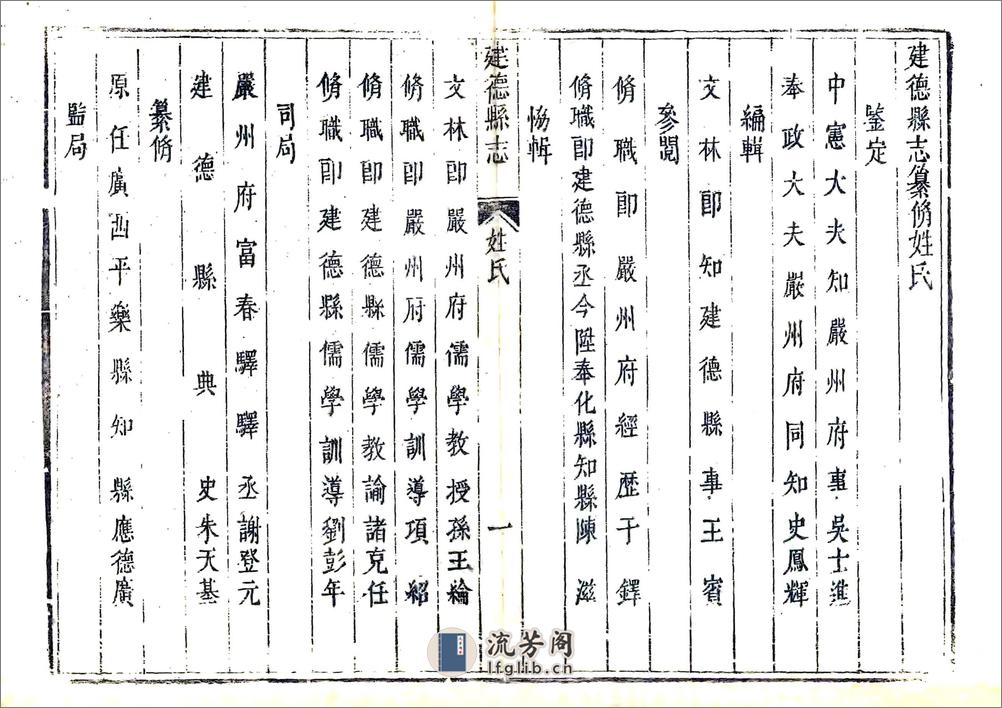 建德縣志纂脩姓氏
鉴定
中憲大夫知嚴州府事吳士進
奉政大夫嚴州府同知史鳳輝
編輯
文林郎知建德縣事王賓
參閱
脩職郎嚴州府經歷于鐸
脩職郎建德縣丞今陞奉化縣知縣陳滋
恊輯
建德縣志
姓氏
一
文林郎嚴州府儒學教授孫王綸
脩職郎嚴州府儒學訓導項紹
脩職郎建德縣儒學教諭諸克任
脩職郎建德縣儒學訓導劉彭年
司局
嚴州府富春驛驛丞謝登元
建德縣典史朱天基
纂脩
原任廣西平樂縣知縣應德廣
監局
流芳阁
lfglib.cn